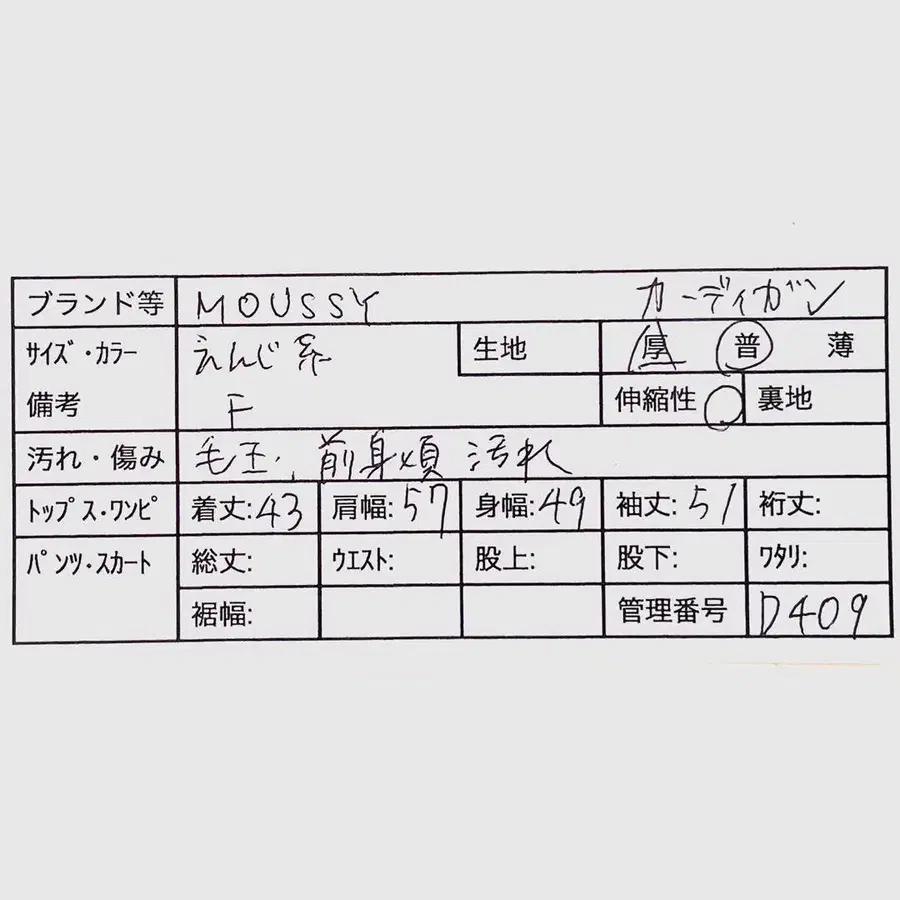 ブランド等 MOUSSY カーディガン
サイズ・カラー えんじ系 生地 厚 普 薄
備考 F 伸縮性 裏地
汚れ・傷み 毛玉、前身頃 汚れ
トップス・ワンピ 着丈:43 肩幅:57 身幅:49 袖丈:51 裄丈:
パンツ・スカート 総丈: ウエスト: 股上: 股下: ワタリ:
裾幅: 管理番号 D409